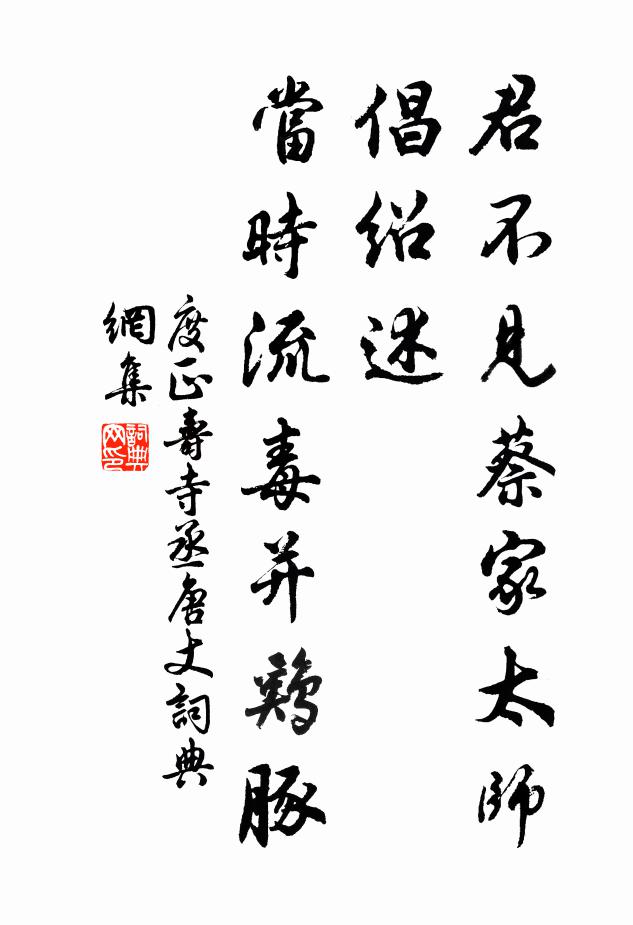 君不見蔡家太師
倡紹述
當時流毒并鷄豚
度正壽寺丞唐丈詞典
網集
詞典
网印